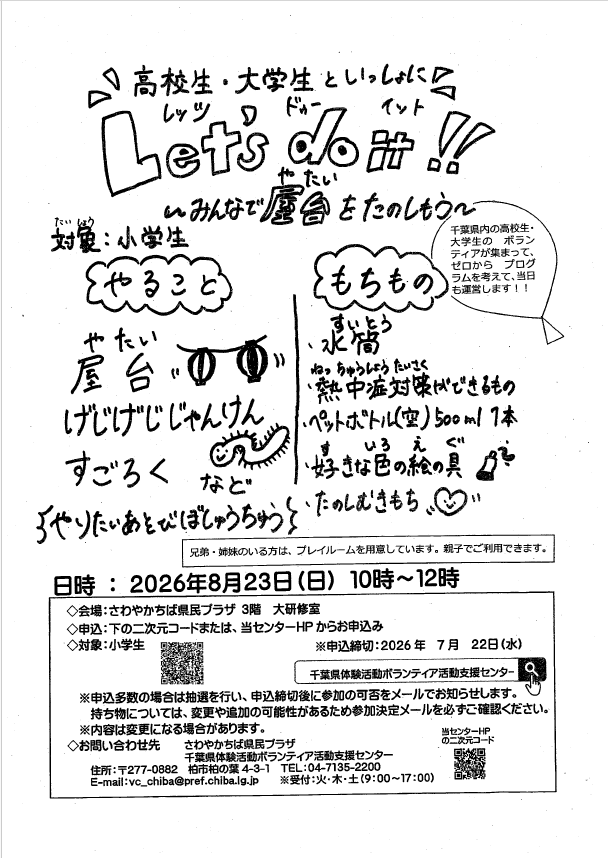 高校生・大学生といっしょに
レッツ ドゥー イット
Let's do it!!
やたい
~みんなで屋台をたのしもう~
たいしょう
対象:小学生
千葉県内の高校生・
大学生の ボラン
ティアが集まって、
ゼロから プログ
ラムを考えて、当日
も運営します!!
やること
やたい
屋台
げじげじじゃんけん
すごろく
など
やりたいあそびぼしゅうちゅう
もちもの
すいとう
・水筒
ねっちゅうしょうたいさく
・熱中症対策ができるもの
・ペットボトル(空)500ml 1本
す いろ え ぐ
・好きな色の絵の具
・たのしむきもち
兄弟・姉妹のいる方は、プレイルームを用意しています。親子でご利用できます。
日時 : 2026年8月23日(日) 10時~12時
◇会場:さわやかちば県民プラザ 3階 大研修室
◇申込:下の二次元コードまたは、当センターHPからお申込み
◇対象:小学生
※申込締切:2026年 7月 22日(水)
千葉県体験活動ボランティア活動支援センター
※申込多数の場合は抽選を行い、申込締切後に参加の可否をメールでお知らせします。
持ち物については、変更や追加の可能性があるため参加決定メールを必ずご確認ください。
※内容は変更になる場合があります。
◇お問い合わせ先 さわやかちば県民プラザ
千葉県体験活動ボランティア活動支援センター
住所:〒277-0882 柏市柏の葉4-3-1 TEL:04-7135-2200
E-mail:vc_chiba@pref.chiba.lg.jp ※受付:火・木・土(9:00~17:00)
当センターHP
の二次元コード